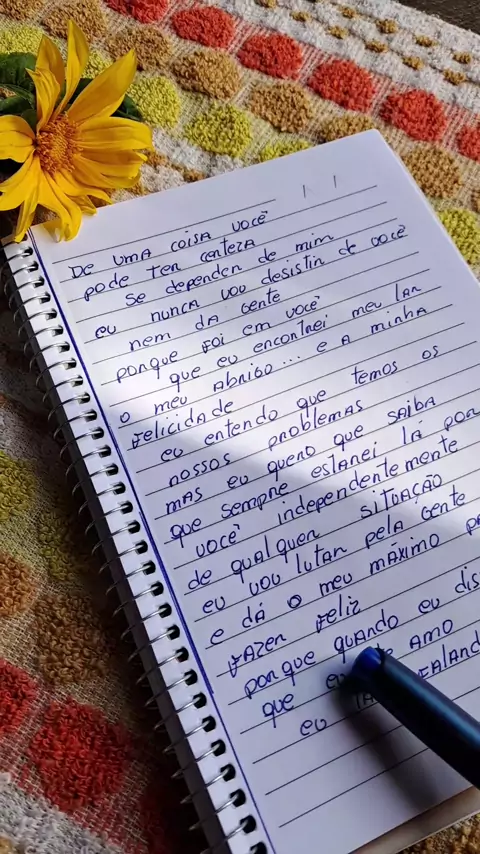 De uma coisa você
pode ter certeza
se depender de mim
eu nunca vou desistir de você
nem da gente
porque foi em você
que eu encontrei meu lar
o meu abrigo... e a minha
felicidade
eu entendo que temos os
nossos problemas
mas eu quero que saiba
que sempre estarei lá por
você independentemente
de qualquer situação
eu vou lutar pela gente
e dá o meu máximo
fazer feliz
porque quando eu
que amo
eu